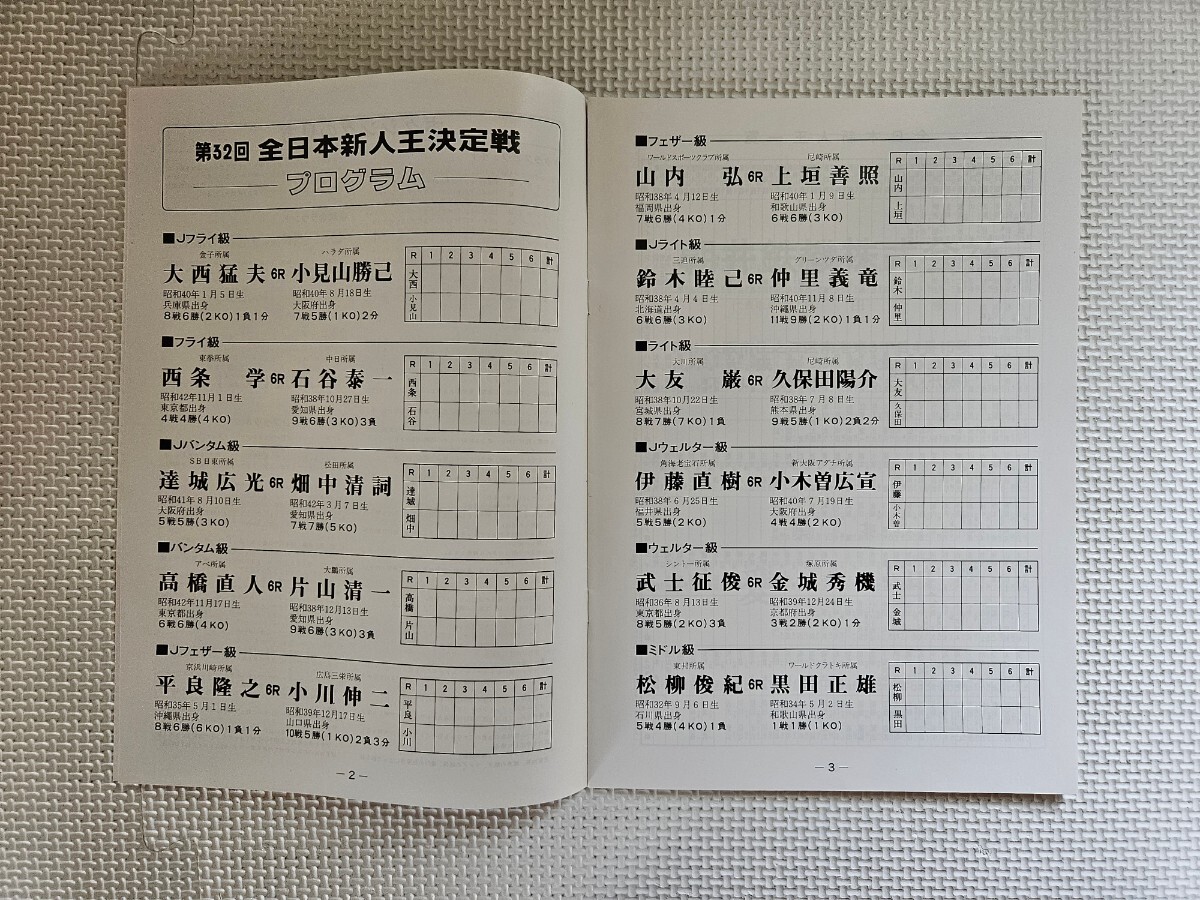 第32回 全日本新人王決定戦
プログラム
■Jフライ級
金子所属 ハラダ所属
大西猛夫 6R 小見山勝己
昭和40年1月5日生 昭和40年8月18日生
兵庫県出身 大阪府出身
8戦6勝(2KO)1負1分 7戦5勝(1KO)2分
R 1 2 3 4 5 6 計
大西
小見山
■フライ級
東拳所属 中日所属
西条 学 6R 石谷泰一
昭和42年11月1日生 昭和38年10月27日生
東京都出身 愛知県出身
4戦4勝(4KO) 9戦6勝(3KO)3負
R 1 2 3 4 5 6 計
西条
石谷
■Jバンタム級
SB日東所属 松田所属
達城広光 6R 畑中清詞
昭和41年8月10日生 昭和42年3月7日生
大阪府出身 愛知県出身
5戦5勝(3KO) 7戦7勝(5KO)
R 1 2 3 4 5 6 計
達城
畑中
■バンタム級
アベ所属 大鵬所属
高橋直人 6R 片山清一
昭和42年11月17日生 昭和38年12月13日生
東京都出身 愛知県出身
6戦6勝(4KO) 9戦6勝(3KO)3負
R 1 2 3 4 5 6 計
高橋
片山
■Jフェザー級
京浜川崎所属 広島三栄所属
平良隆之 6R 小川伸二
昭和35年5月1日生 昭和39年12月17日生
沖縄県出身 山口県出身
8戦6勝(6KO)1負1分 10戦5勝(1KO)2負3分
R 1 2 3 4 5 6 計
平良
小川
—2—
■フェザー級
ワールドスポーツクラブ所属 尼崎所属
山内 弘 6R 上垣善照
昭和38年4月12日生 昭和40年1月9日生
福岡県出身 和歌山県出身
7戦6勝(4KO)1分 6戦6勝(3KO)
R 1 2 3 4 5 6 計
山内
上垣
■Jライト級
三迫所属 グリーンツダ所属
鈴木睦己 6R 仲里義竜
昭和38年4月4日生 昭和40年11月8日生
北海道出身 沖縄県出身
6戦6勝(3KO) 11戦9勝(2KO)1負1分
R 1 2 3 4 5 6 計
鈴木
仲里
■ライト級
大川所属 尼崎所属
大友 厳 6R 久保田陽介
昭和38年10月22日生 昭和38年7月8日生
宮城県出身 熊本県出身
8戦7勝(7KO)1負 9戦5勝(1KO)2負2分
R 1 2 3 4 5 6 計
大友
久保田
■Jウェルター級
角海老宝石所属 新大阪アダチ所属
伊藤直樹 6R 小木曽広宣
昭和38年6月25日生 昭和40年7月19日生
福井県出身 大阪府出身
5戦5勝(2KO) 4戦4勝(2KO)
R 1 2 3 4 5 6 計
伊藤
小木曽
■ウェルター級
シントー所属 塚原所属
武士征俊 6R 金城秀機
昭和36年8月13日生 昭和39年12月24日生
東京都出身 京都府出身
8戦5勝(2KO)3負 3戦2勝(2KO)1分
R 1 2 3 4 5 6 計
武士
金城
■ミドル級
東村所属 ワールドクラトキ所属
松柳俊紀 6R 黒田正雄
昭和32年9月6日生 昭和34年5月2日生
石川県出身 和歌山県出身
5戦4勝(4KO)1負 1戦1勝(1KO)
R 1 2 3 4 5 6 計
松柳
黒田
—3—